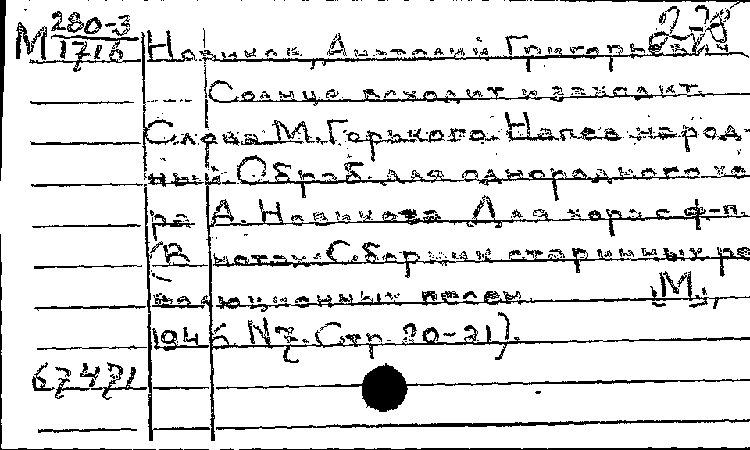 М 280-3/1716 Новиков, Анатолий Григорьевич 2-78
Солнце всходит и заходит.
Слова М. Горького. Напев народ-
ный. Обраб. для однородного хо-
ра А. Новикова. Для хора с ф-п.
(В нотах: Сборник старинных ре
волюционных песен. "М.",
1946. N 7. Стр. 20-21).
67471